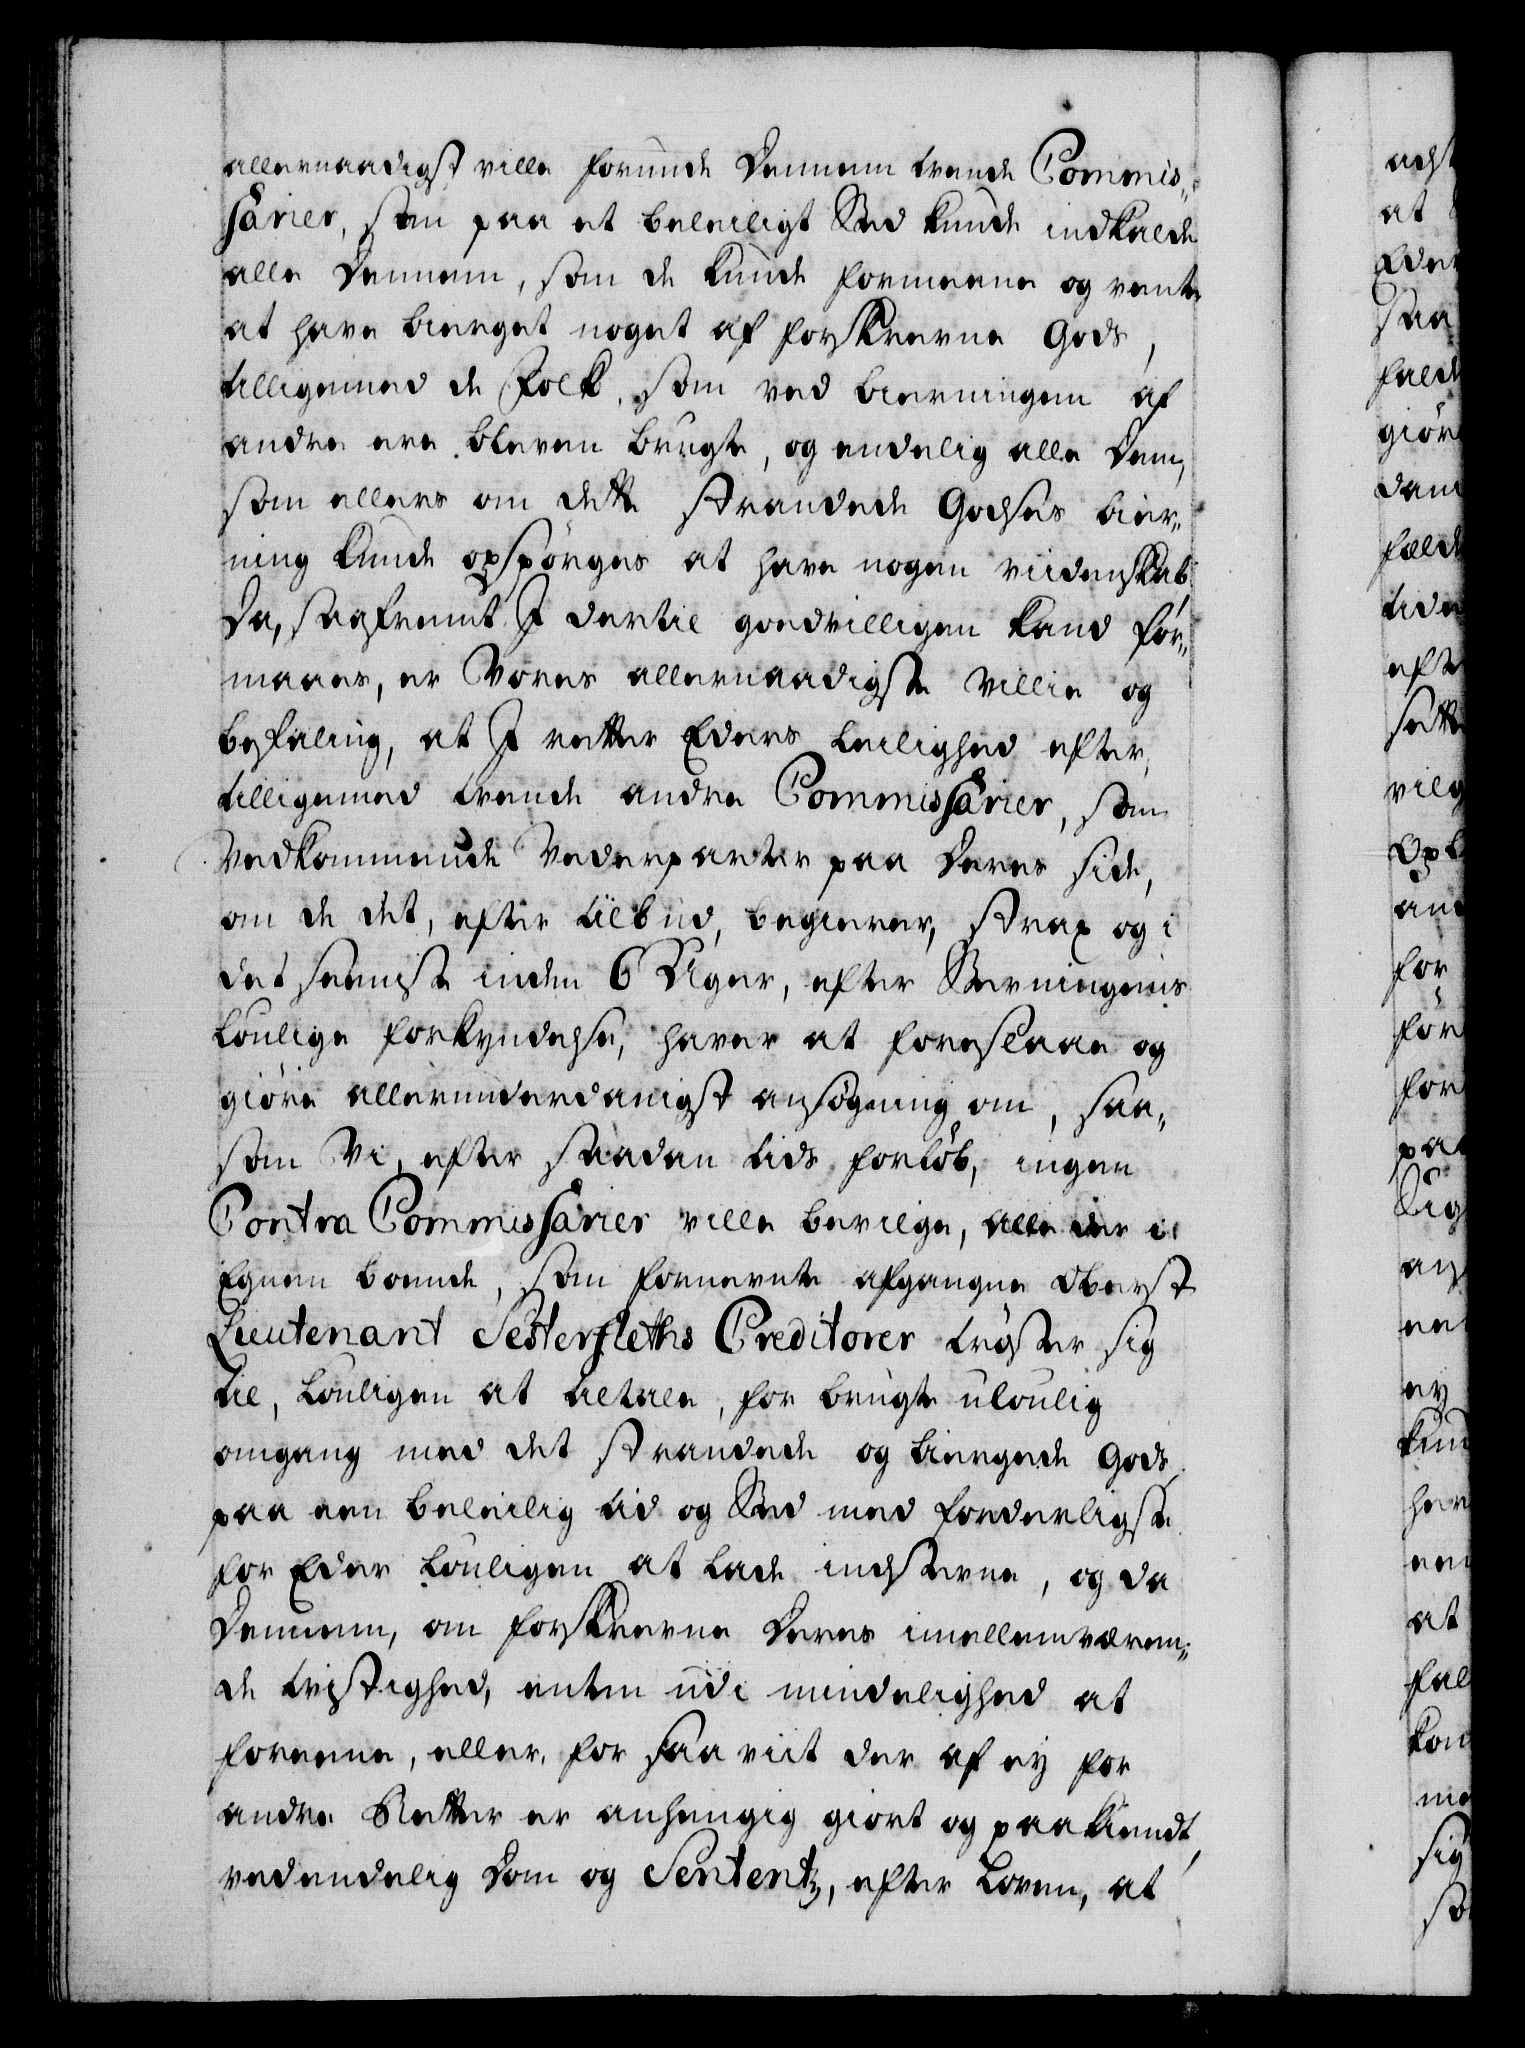 allernaadigst ville forunde Dennem trende Commis„
sarier, som paa et beleiligt Sted kunde indkalde
alle Dennem, som de kunde formeene og vente
at have bierget noget af forskrevne Gods,
tilligemed de Folk, som ved bierningen af
andre ere bleven brugte, og endelig alle Dem,
som ellers om dette strandede Godses bier„
ning kunde opspørges at have nogen viidenskab
Da, saafremt I dertil goedvilligen kand for„
maaes, er Vores allernaadigste Villie og
befaling, at I retter Eders leilighed efter,
tilligemed trende andre Commissarier, som
Vedkommende Vederparter paa Deres side,
om de det, efter tilbud, begierer, strax og i
det seeniste inden 6 Uger, efter Stevningens
lovlige forkyndelse, haver at foreslaae og
giøre allerunderdanigst ansøgning om, saa„
som Vi, efter saadan tids forløb, ingen
Contra Commissarier ville bevilge, alle der i
Egnen boende, som fornevnte afgangne Oberst
Lieutenant Sesterfleths Creditorer trøster sig
til, lovligen at tiltale, for brugte ulovlig
omgang med det strandede og biergede Gods,
paa een beleilig tid og Sted med forderligste
for Eder lovligen at lade indstevne, og da
Dennem, om forskrevne Deres imellemværen„
de tvistighed, enten udi mindelighed at
foreene, eller, for saa viit der af ey for
andre Retter er anhengig giort og paakiendt,
ved endelig Dom og Sententz, efter Loven, at